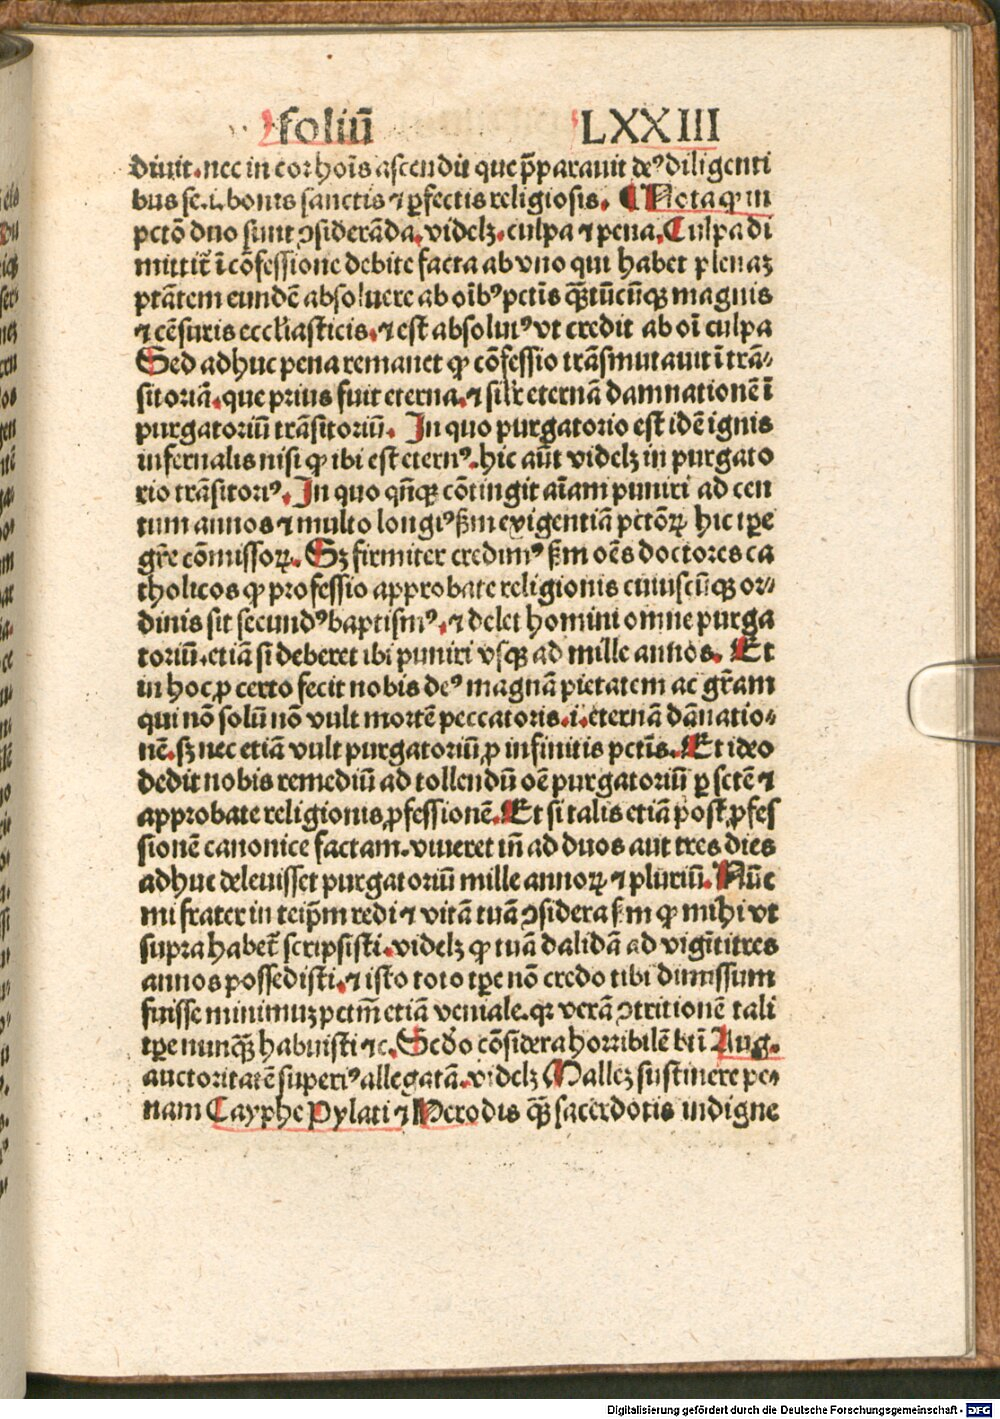 foliū LXXIII
diuit. nec in cor hoīs ascendit que p̄parauit deꝰ diligenti
bus se .i. bonis sanctis ⁊ ꝑfectis religiosis. ¶ Nota ꝙ in
pctō duo sunt ꝯsiderāda. videlꝫ. culpa ⁊ pena. Culpa di
mittit̄ ī cōfessione debite facta ab vno qui habet plenaꝫ
ptātem eundē absoluere ab oībꝰ pctīs qͣ̄tūcūqꝫ magnis
⁊ cēsuris eccl'iasticis. ⁊ est absolutꝰ vt credit ab oī culpa
Sed adhuc pena remanet ꝙ cōfessio trāsmutauit ī trā⸗
sitoriā. que prius fuit eterna. ⁊ sil'r eternā damnationē ī
purgatoriū trāsitoriū. In quo purgatorio est idē ignis
infernalis nisi ꝙ ibi est eternꝰ. hic aūt videlꝫ in purgato
rio trāsitoriꝰ. In quo qn̄qꝫ cōtingit aīam puniri ad cen
tum annos ⁊ multo longiꝰ ẜm exigentiā pctōꝝ hic tꝑe
gr̄e cōmissoꝝ. Sꝫ firmiter credimꝰ ẜm oēs doctores ca
tholicos ꝙ professio approbate religionis cuiuscūqꝫ or⸗
dinis sit secundꝰ baptismꝰ. ⁊ delet homini omne purga
toriū. etiā si deberet ibi puniri vsqꝫ ad mille annos. Et
in hoc ꝓ certo fecit nobis deꝰ magnā pietatem ac gr̄am
qui nō solū nō vult mortē peccatoris .i. eternā dānatio⸗
nē. sꝫ nec etiā vult purgatoriū ꝓ infinitis pctīs. Et ideo
dedit nobis remediū ad tollendū oē purgatoriū ꝑ sctē ⁊
approbate religionis ꝓfessionē. Et si talis etiā post ꝓfes
sionē canonice factam. viueret in̄ ad duos aut tres dies
adhuc deleuisset purgatoriū mille annoꝝ ⁊ pluriū. Nūc
mi frater in teip̄m redi ⁊ vitā tuā ꝯsidera ẜm ꝙ mihi vt
supra habet̄ scripsisti. videlꝫ ꝙ tuā dalidā ad vigīti tres
annos possedisti. ⁊ isto toto tꝑe nō credo tibi dimissum
fuisse minimuꝫ pctm̄ etiā veniale. qꝛ verā ꝯtritionē tali
tꝑe nunqͣ̄ habuisti ⁊c. Sed'o cōsidera horribilē bt̄i Aug.
auctoritatē superiꝰ allegatā. videlꝫ Malleꝫ sustinere pe⸗
nam Cayphe Pylati ⁊ Herodis qͣ̄ sacerdotis indigne
Digitalisierung gefördert durch die Deutsche Forschungsgemeinschaft - DFG